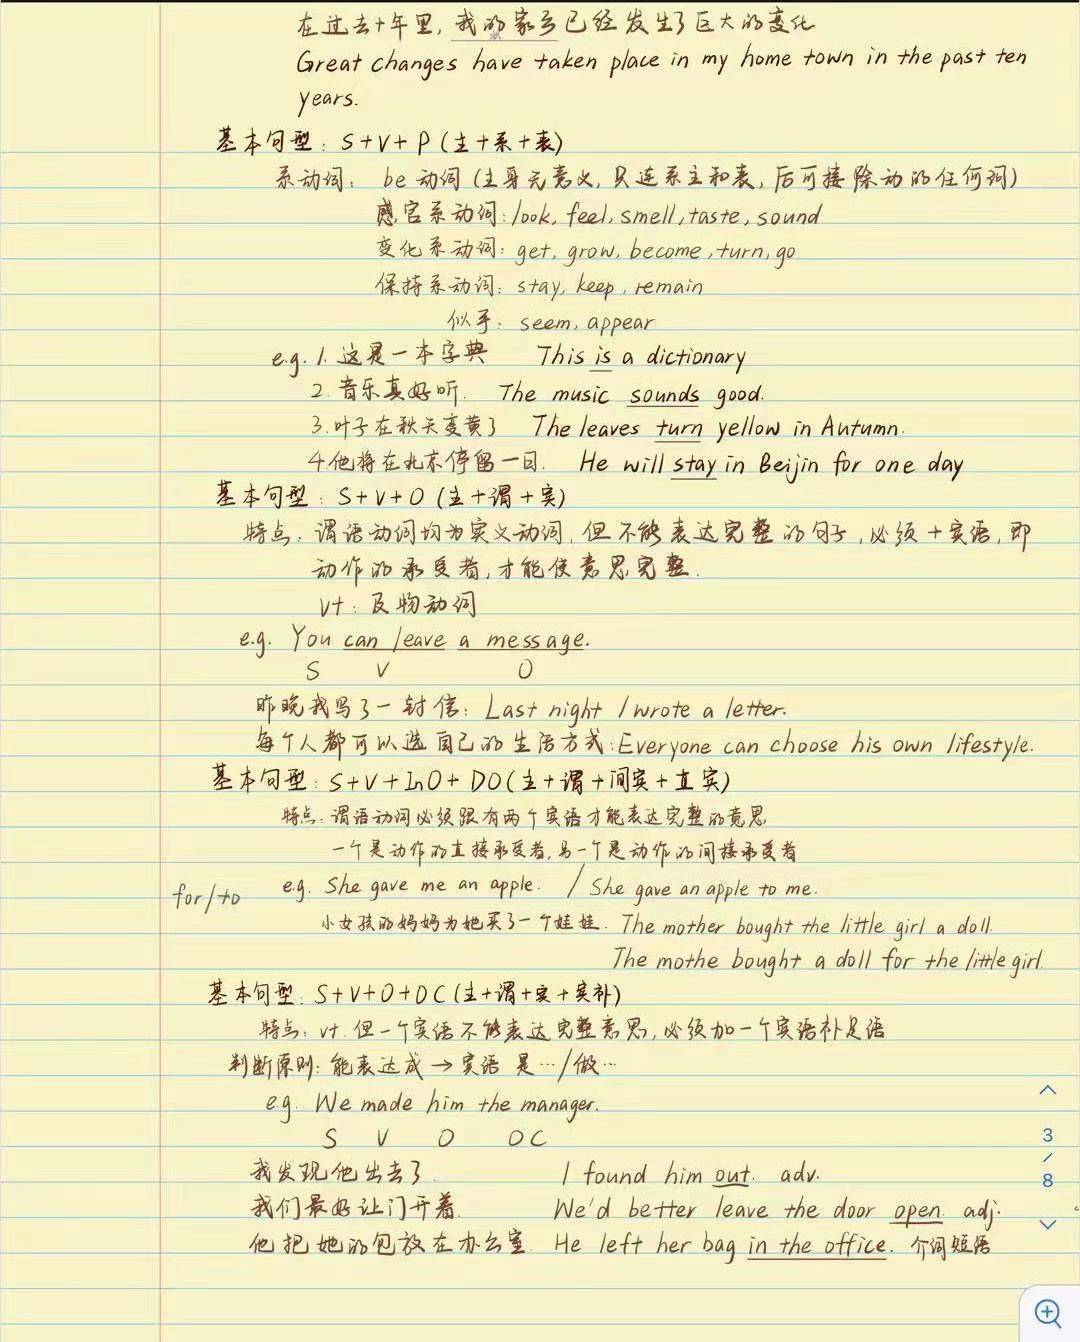 在过去十年里, 我的家乡已经发生了巨大的变化
Great changes have taken place in my home town in the past ten
years.
基本句型: S+V+P (主+系+表)
系动词: be 动词 (主身无意义, 只连系主和表, 后可接除动的任何词)
感官系动词: look, feel, smell, taste, sound
变化系动词: get, grow, become, turn, go
保持系动词: stay, keep, remain
似乎: seem, appear
e.g. 1. 这是一本字典 This is a dictionary
2. 音乐真好听. The music sounds good.
3. 叶子在秋天变黄了 The leaves turn yellow in Autumn.
4. 他将在北京停留一日. He will stay in Beijin for one day
基本句型: S+V+O (主+谓+宾)
特点: 谓语动词均为实义动词, 但不能表达完整的句子, 必须+宾语, 即
动作的承受者, 才能使意思完整.
vt: 及物动词
e.g. You can leave a message.
S V O
昨晚我写了一封信: Last night I wrote a letter.
每个人都可以选自己的生活方式: Everyone can choose his own lifestyle.
基本句型: S+V+InO+DO (主+谓+间宾+直宾)
特点: 谓语动词必须跟有两个宾语才能表达完整的意思
一个是动作的直接承受者, 另一个是动作的间接承受者
for/to e.g. She gave me an apple. / She gave an apple to me.
小女孩的妈妈为她买了一个娃娃. The mother bought the little girl a doll.
The mothe bought a doll for the little girl.
基本句型: S+V+O+OC (主+谓+宾+宾补)
特点: vt. 但一个宾语不能表达完整意思, 必须加一个宾语补足语
判断原则: 能表达成 → 宾语 是…/做…
e.g. We made him the manager.
S V O OC
我发现他出去了. I found him out. adv.
我们最好让门开着. We'd better leave the door open. adj.
他把她的包放在办公室. He left her bag in the office. 介词短语
3
/
8